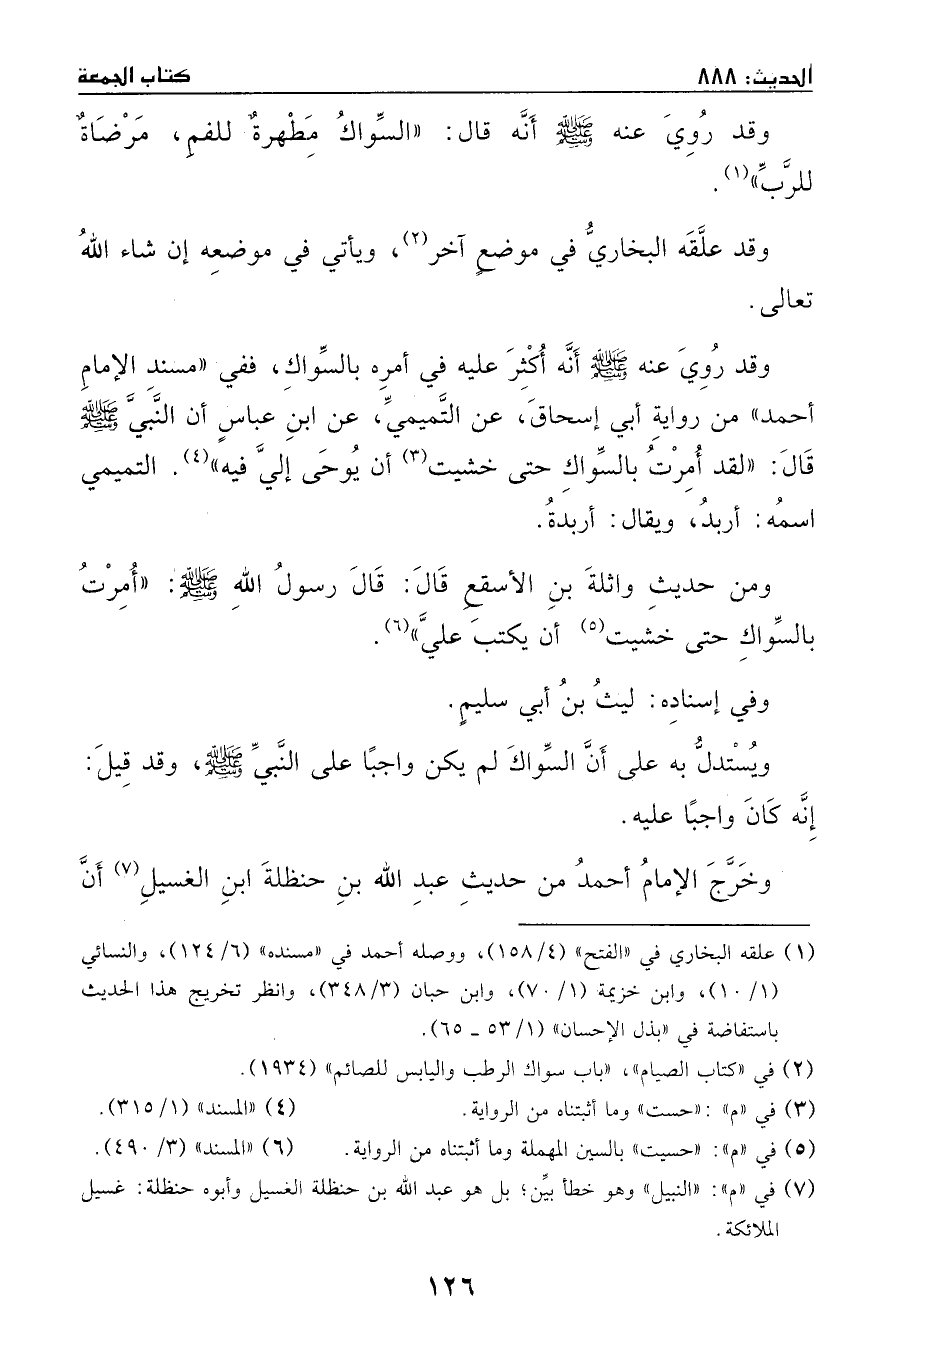 الحديث: ٨٨٨ كتاب الجمعة
وقد رُوِيَ عنه ﷺ أنَّه قال: «السِّواكُ مَطْهرةٌ للفمِ، مَرْضَاةٌ
للرَّبِّ»(١).
وقد علَّقَه البخاريُّ في موضعٍ آخر(٢)، ويأتي في موضعِه إن شاء اللهُ
تعالى.
وقد رُوِيَ عنه ﷺ أنَّه أُكْثِرَ عليه في أمرِه بالسِّواكِ، ففي «مسندِ الإمامِ
أحمد» من روايةِ أبي إسحاقَ، عن التَّميميِّ، عن ابنِ عباسٍ أن النَّبيَّ ﷺ
قَالَ: «لقد أُمِرْتُ بالسِّواكِ حتى خشيت(٣) أن يُوحَى إليَّ فيه»(٤). التميمي
اسمُه: أربدُ، ويقال: أربدةُ.
ومن حديثِ واثلةَ بنِ الأسقعِ قَالَ: قَالَ رسولُ اللهِ ﷺ: «أُمِرْتُ
بالسِّواكِ حتى خشيت(٥) أن يكتبَ عليَّ»(٦).
وفي إسنادِه: ليثُ بنُ أبي سليمٍ.
ويُسْتدلُّ به على أنَّ السِّواكَ لم يكن واجبًا على النَّبيِّ ﷺ، وقد قِيلَ:
إنَّه كَانَ واجبًا عليه.
وخَرَّجَ الإمامُ أحمدُ من حديثِ عبدِ الله بنِ حنظلةَ ابنِ الغسيلِ(٧) أنَّ
(١) علقه البخاري في «الفتح» (٤/ ١٥٨)، ووصله أحمد في «مسنده» (٦/ ١٢٤)، والنسائي
(١/ ١٠)، وابن خزيمة (١/ ٧٠)، وابن حبان (٣/ ٣٤٨)، وانظر تخريج هذا الحديث
باستفاضة في «بذل الإحسان» (١/ ٥٣ ـ ٦٥).
(٢) في «كتاب الصيام»، «باب سواك الرطب واليابس للصائم» (١٩٣٤).
(٣) في «م» :«حست» وما أثبتناه من الرواية. (٤) «المسند» (١/ ٣١٥).
(٥) في «م»: «حسيت» بالسين المهملة وما أثبتناه من الرواية. (٦) «المسند» (٣/ ٤٩٠).
(٧) في «م»: «النبيل» وهو خطأ بيِّن؛ بل هو عبد الله بن حنظلة الغسيل وأبوه حنظلة: غسيل
الملائكة.
١٢٦